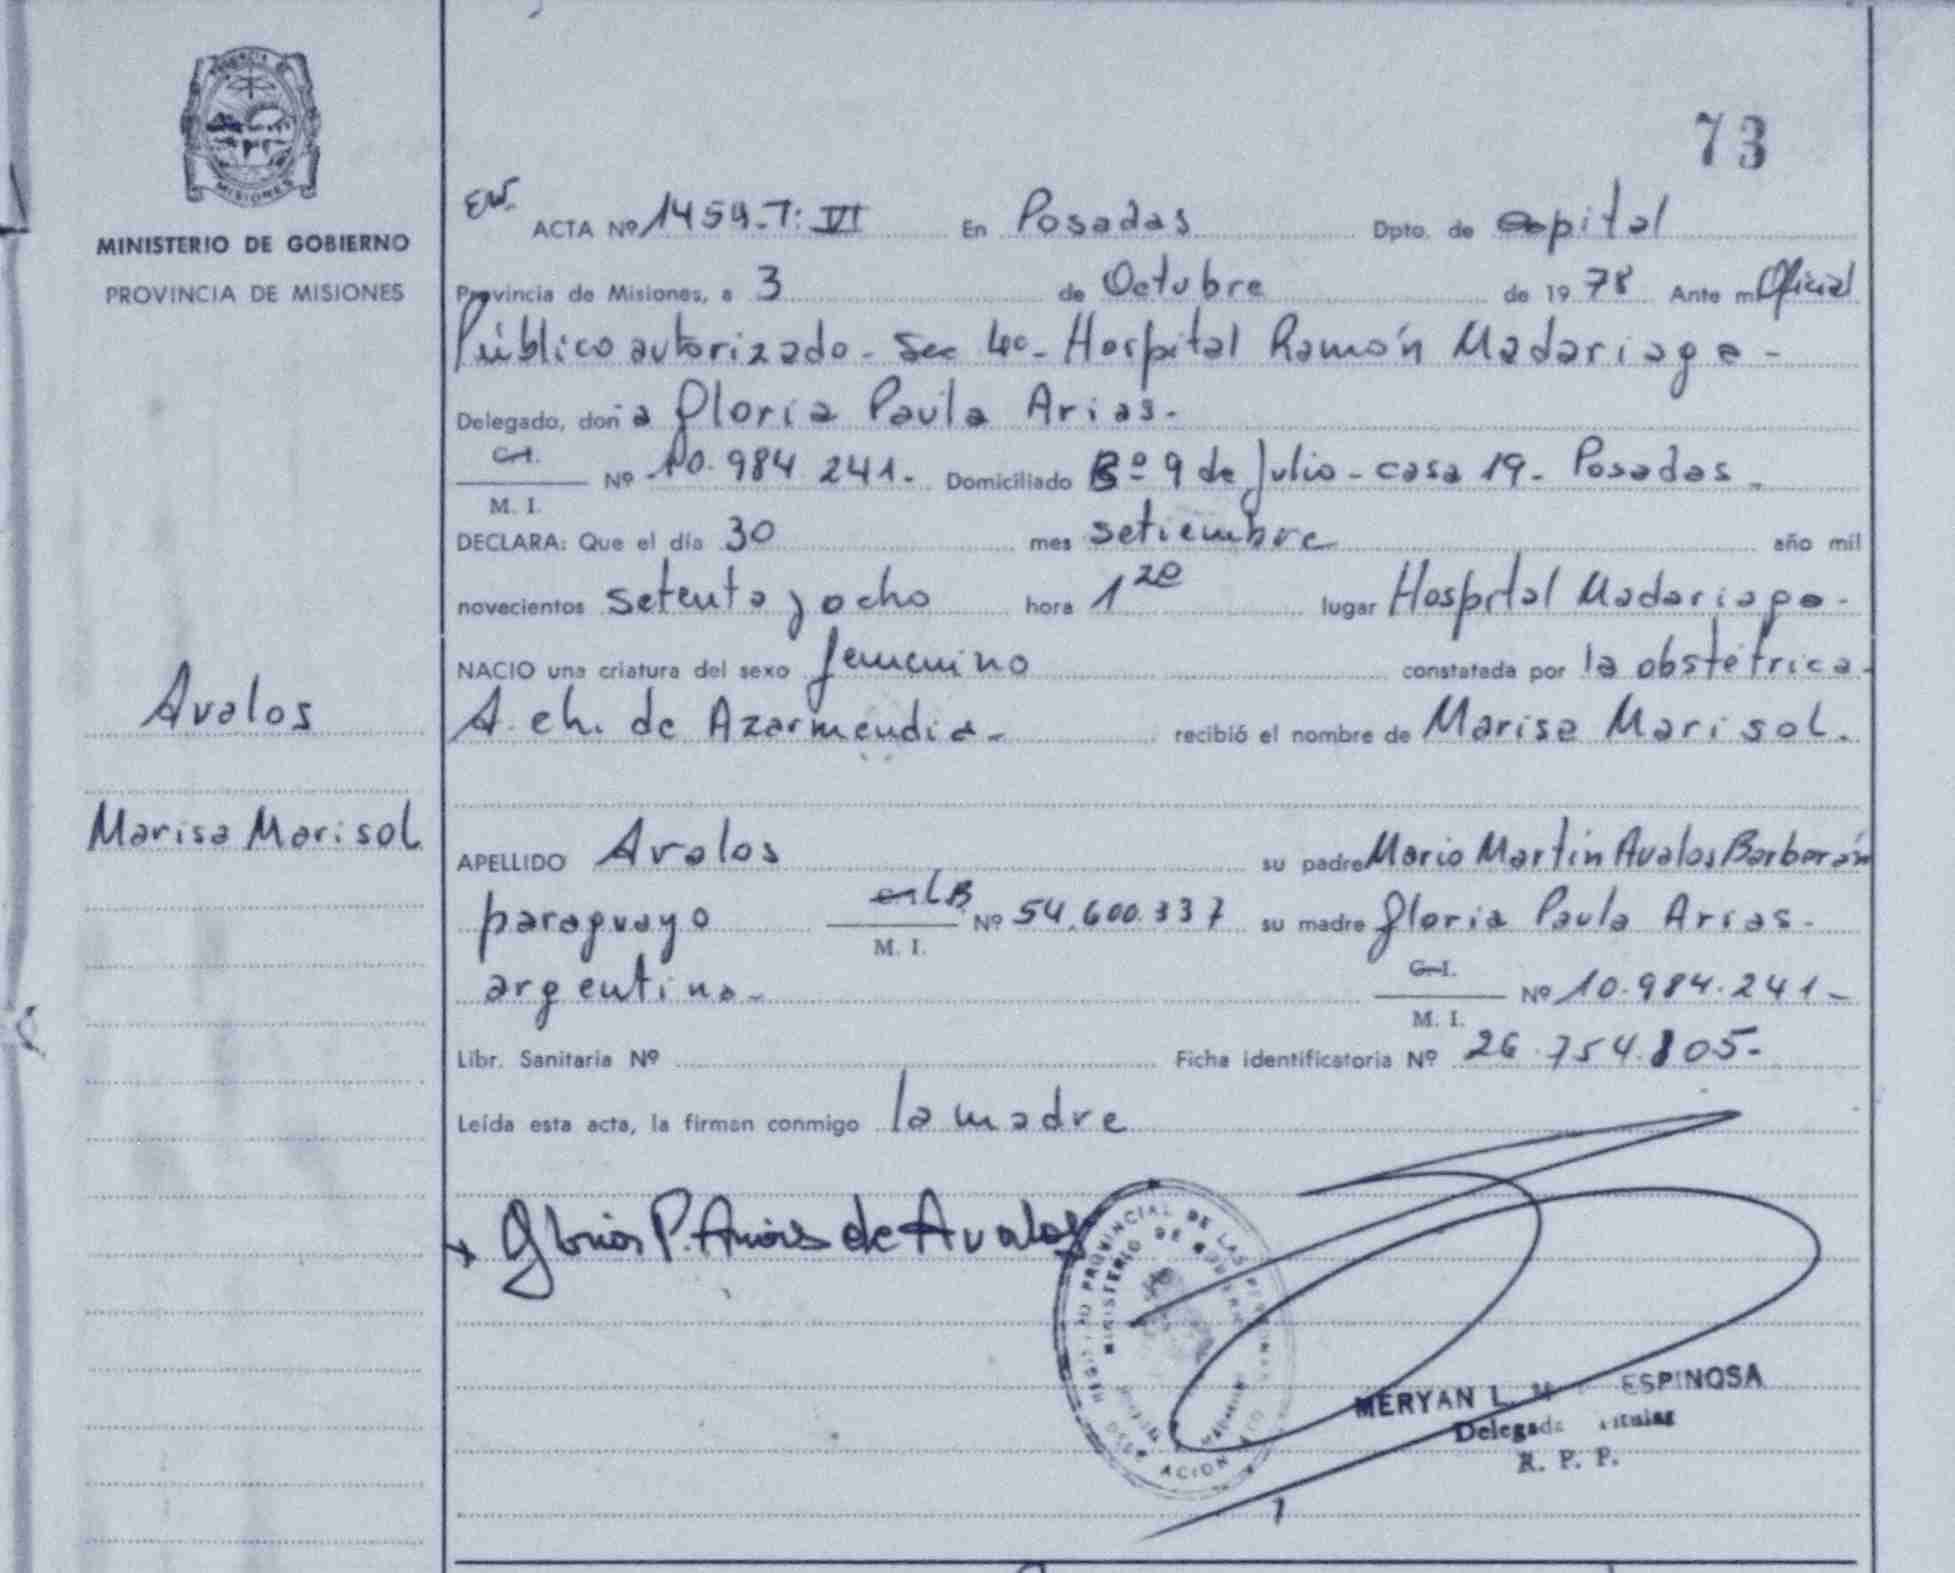 73
MINISTERIO DE GOBIERNO
PROVINCIA DE MISIONES
ACTA Nº 1454-T: VI En Posadas Dpto. de Capital
Provincia de Misiones, a 3 de Octubre de 1978 Ante mi Oficial
Público autorizado - Sec 4º - Hospital Ramón Madariaga -
Delegado, don a Gloria Paula Arias.
C.I.
M. I.
Nº 10.984.241.- Domiciliado Bº 9 de Julio - casa 19 - Posadas -
DECLARA: Que el día 30 mes setiembre año mil
novecientos setenta y ocho hora 1 20 lugar Hospital Madariaga -
NACIO una criatura del sexo femenino constatada por la obstétrica -
A. ch. de Azarmendia - recibió el nombre de Marisa Marisol.
Avalos
Marisa Marisol
APELLIDO Avalos su padre Mario Martín Avalos Barborán
paraguayo LB M. I. Nº 54.600.337 su madre Gloria Paula Arias -
argentina - C.I. M. I. Nº 10.984.241 -
Libr. Sanitaria Nº Ficha identificatoria Nº 26.754.805 -
Leída esta acta, la firman conmigo la madre
Gloria P. Arias de Avalos
REGISTRO PROVINCIAL DE LAS PERSONAS
MINISTERIO DE GOBIERNO
DELEGACION
MERYAN L. ESPINOSA
Delegada Titular
R. P. P.